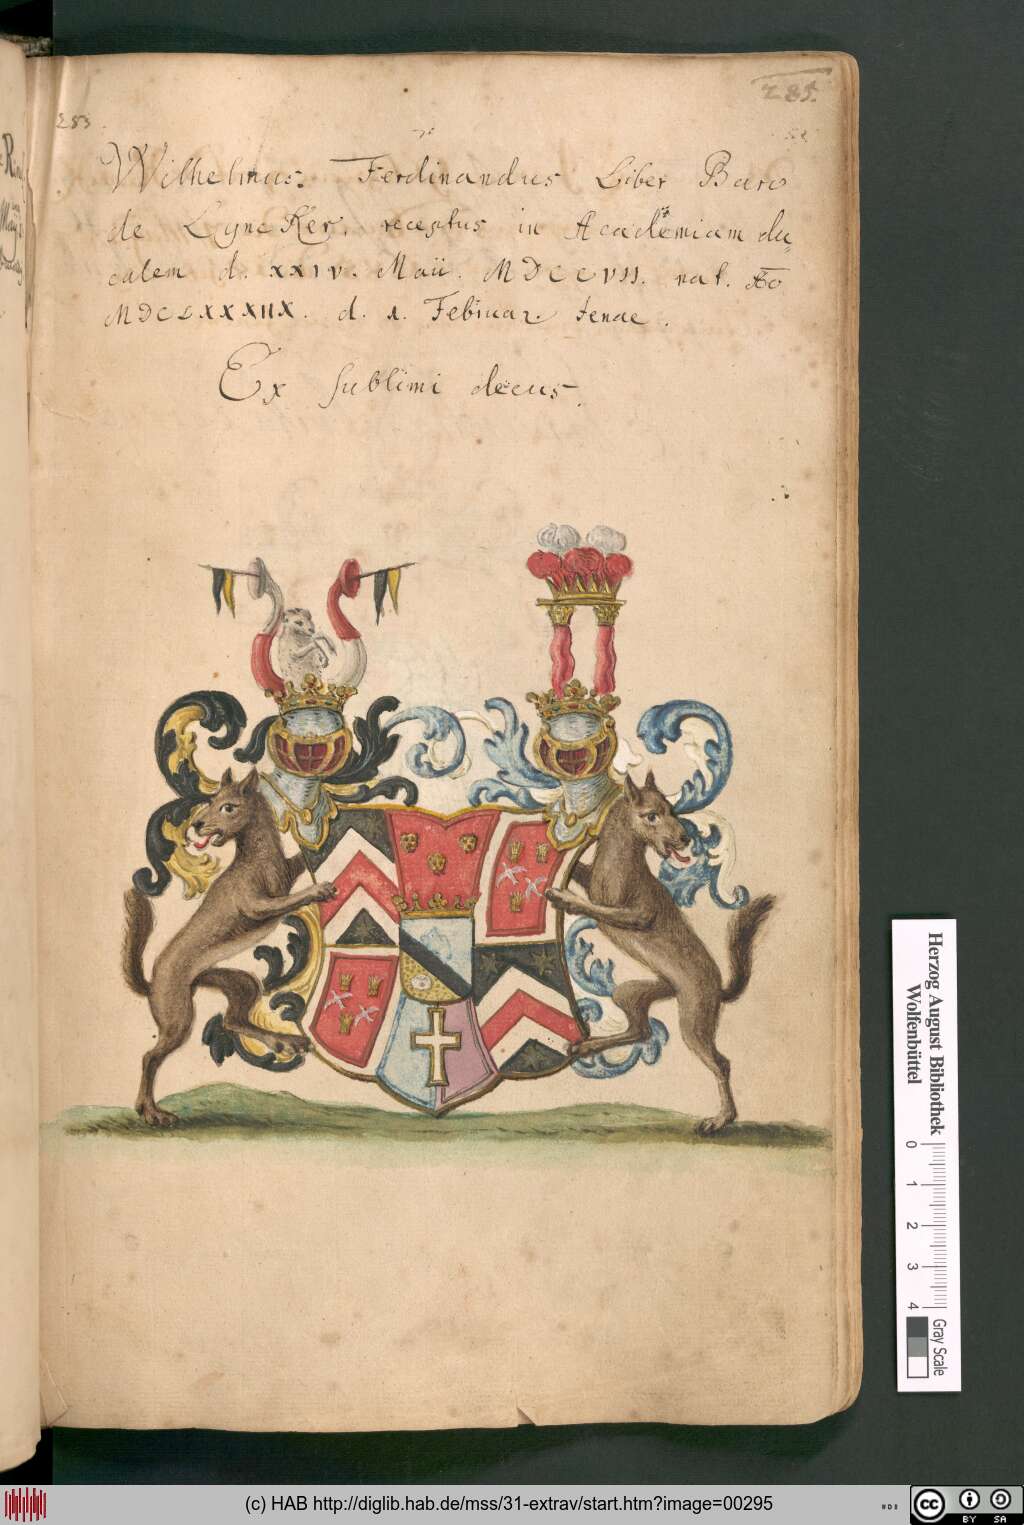 285.
283.
Wilhelmus. Ferdinandus Liber Baro
de LyncKer. receptus in Academiam du=
calem d. XXIV. Maii. MDCCVII. nat. Ao
MDCLXXXIIX. d. 1. Februar. Jenae.
Ex sublimi decus.
Herzog August Bibliothek
Wolfenbüttel
0 1 2 3 4
Gray Scale
(c) HAB http://diglib.hab.de/mss/31-extrav/start.htm?image=00295
cc BY SA